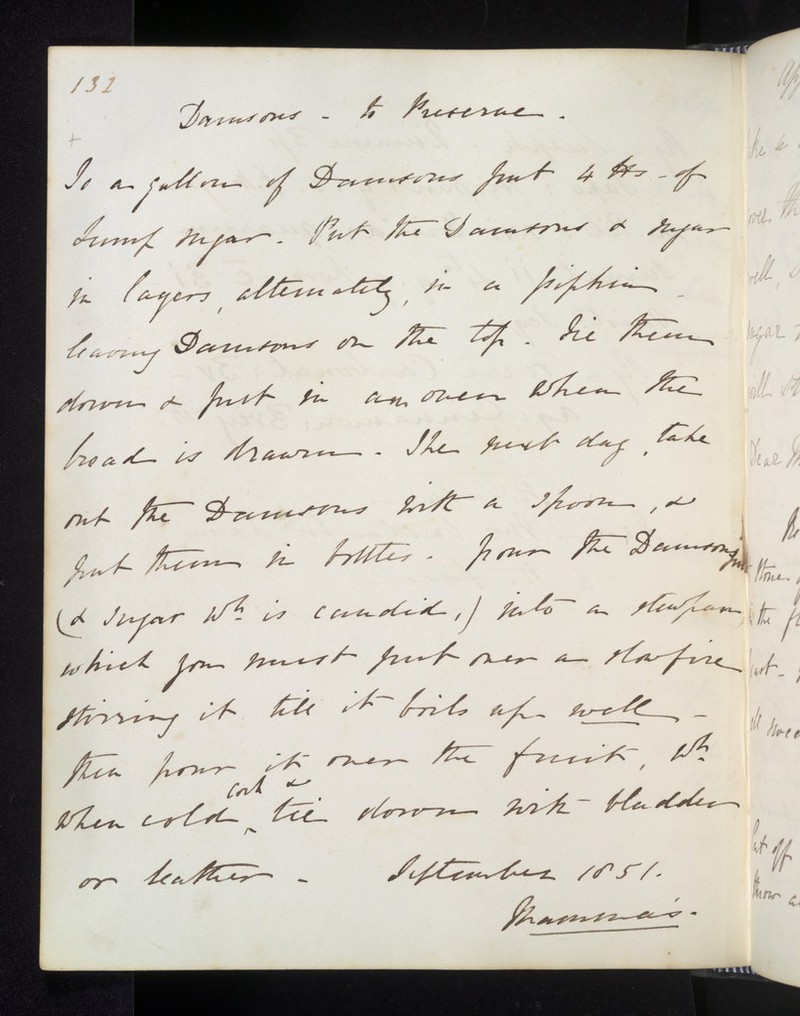 132
Damsons - to Preserve.
+
To a gallon of Damsons put 4 lbs - of
Lump sugar. Put the Damsons & sugar
in layers, alternately, in a pipkin
leaving Damsons on the top. Tie them
down & put in an oven when the
bread is drawn. The next day, take
out the Damsons with a spoon, &
put them in bottles. pour the Damson juice
(& sugar wh. is candid,) into a stewpan,
which you must put over a slow fire
stirring it till it boils up well -
then pour it over the fruit, wh.
cork &
when cold ‸ tie down with bladder
or leather - September 1851.
Mamma's.